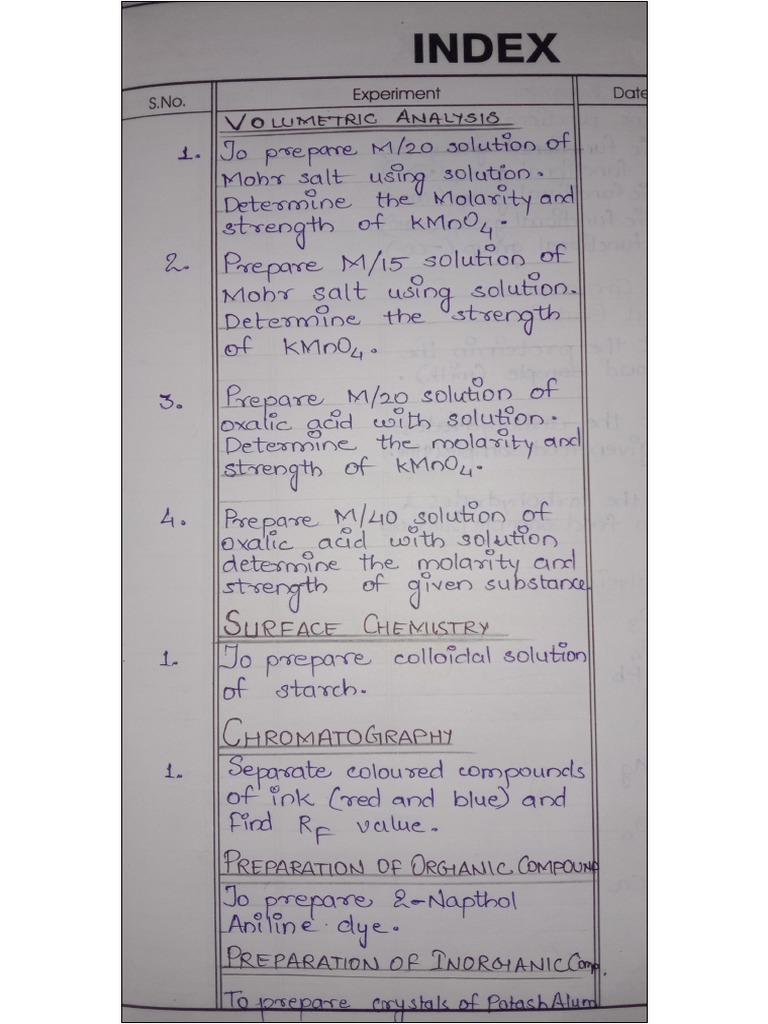 INDEX
S.No. Experiment Date
VOLUMETRIC ANALYSIS
1. To prepare M/20 solution of
Mohr salt using solution.
Determine the Molarity and
strength of KMnO4.
2. Prepare M/15 solution of
Mohr salt using solution.
Determine the strength
of KMnO4.
3. Prepare M/20 solution of
oxalic acid with solution.
Determine the molarity and
strength of KMnO4.
4. Prepare M/40 solution of
oxalic acid with solution
determine the molarity and
strength of given substance
SURFACE CHEMISTRY
1. To prepare colloidal solution
of starch.
CHROMATOGRAPHY
1. Separate coloured compounds
of ink (red and blue) and
find RF value.
PREPARATION OF ORGANIC COMPOUND
To prepare 2-Napthol
Aniline dye.
PREPARATION OF INORGANIC Comp.
To prepare crystals of Potash Alum